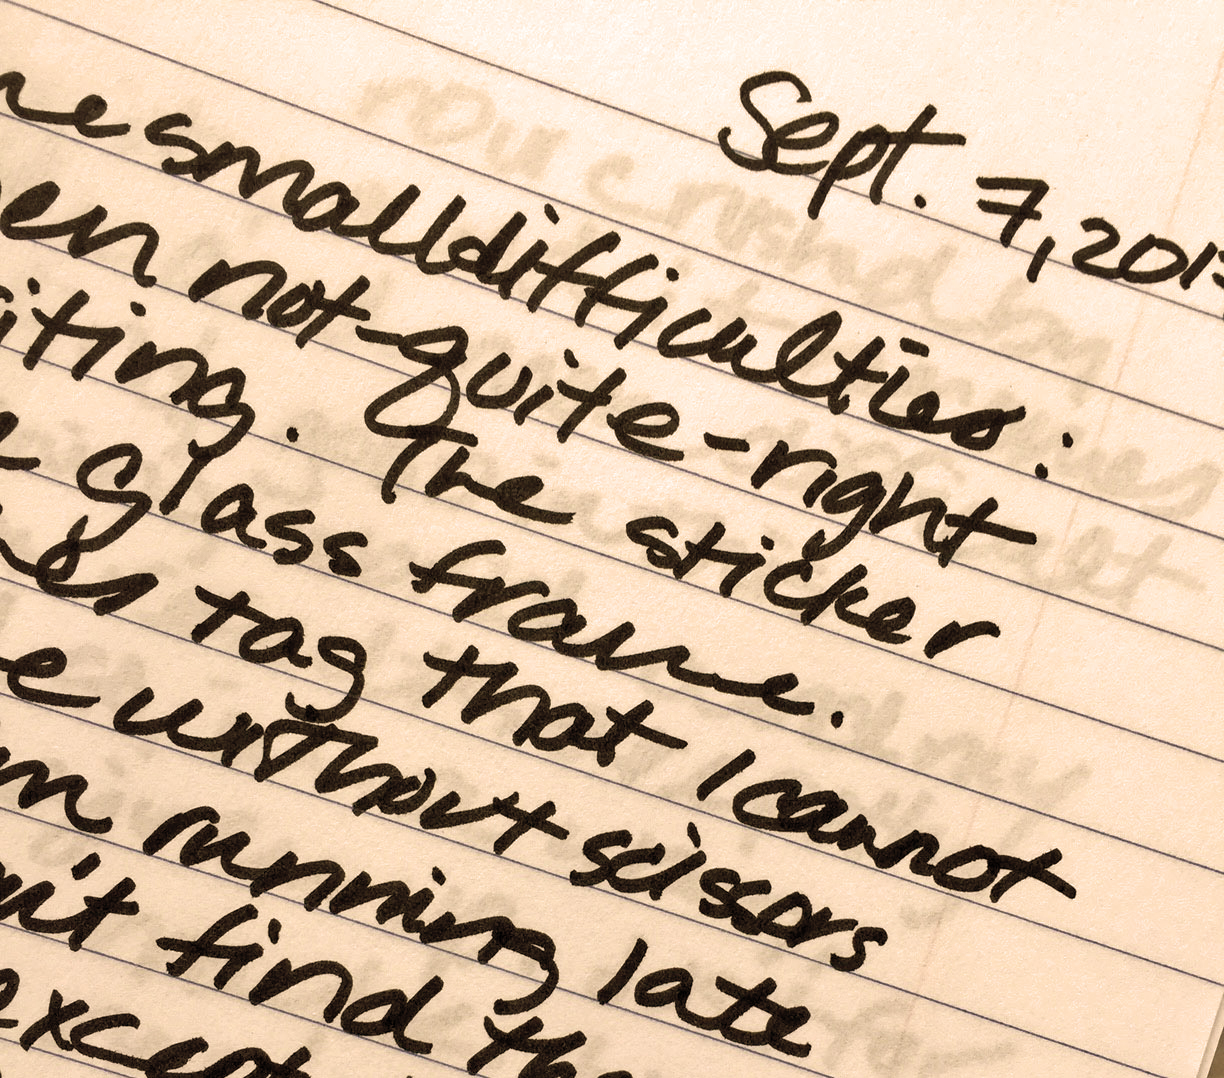 Sept. 7, 201
small difficulties:
not-quite-right
. The sticker
glass frame.
tag that I cannot
without scissors
running late
find the
except